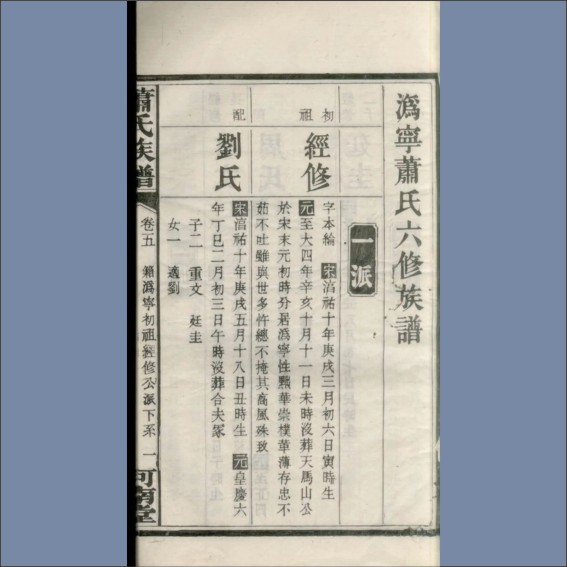 溈寧蕭氏六修族譜
一派
初祖
經修
字本綸 宋淯祐十年庚戌三月初六日寅時生
元至大四年辛亥十月十一日未時沒葬天馬山公
於宋末元初時分居溈寧性黜華崇樸革薄存忠不
茹不吐雖與世多忤總不掩其高風殊致
配
劉氏
宋淯祐十年庚戌五月十八日丑時生 元皇慶六
年丁巳二月初三日午時沒葬合夫冢
子二 重文 廷圭
女一 適劉
蕭氏族譜
卷五 籍溈寧初祖經修公派下系 一
河南堂